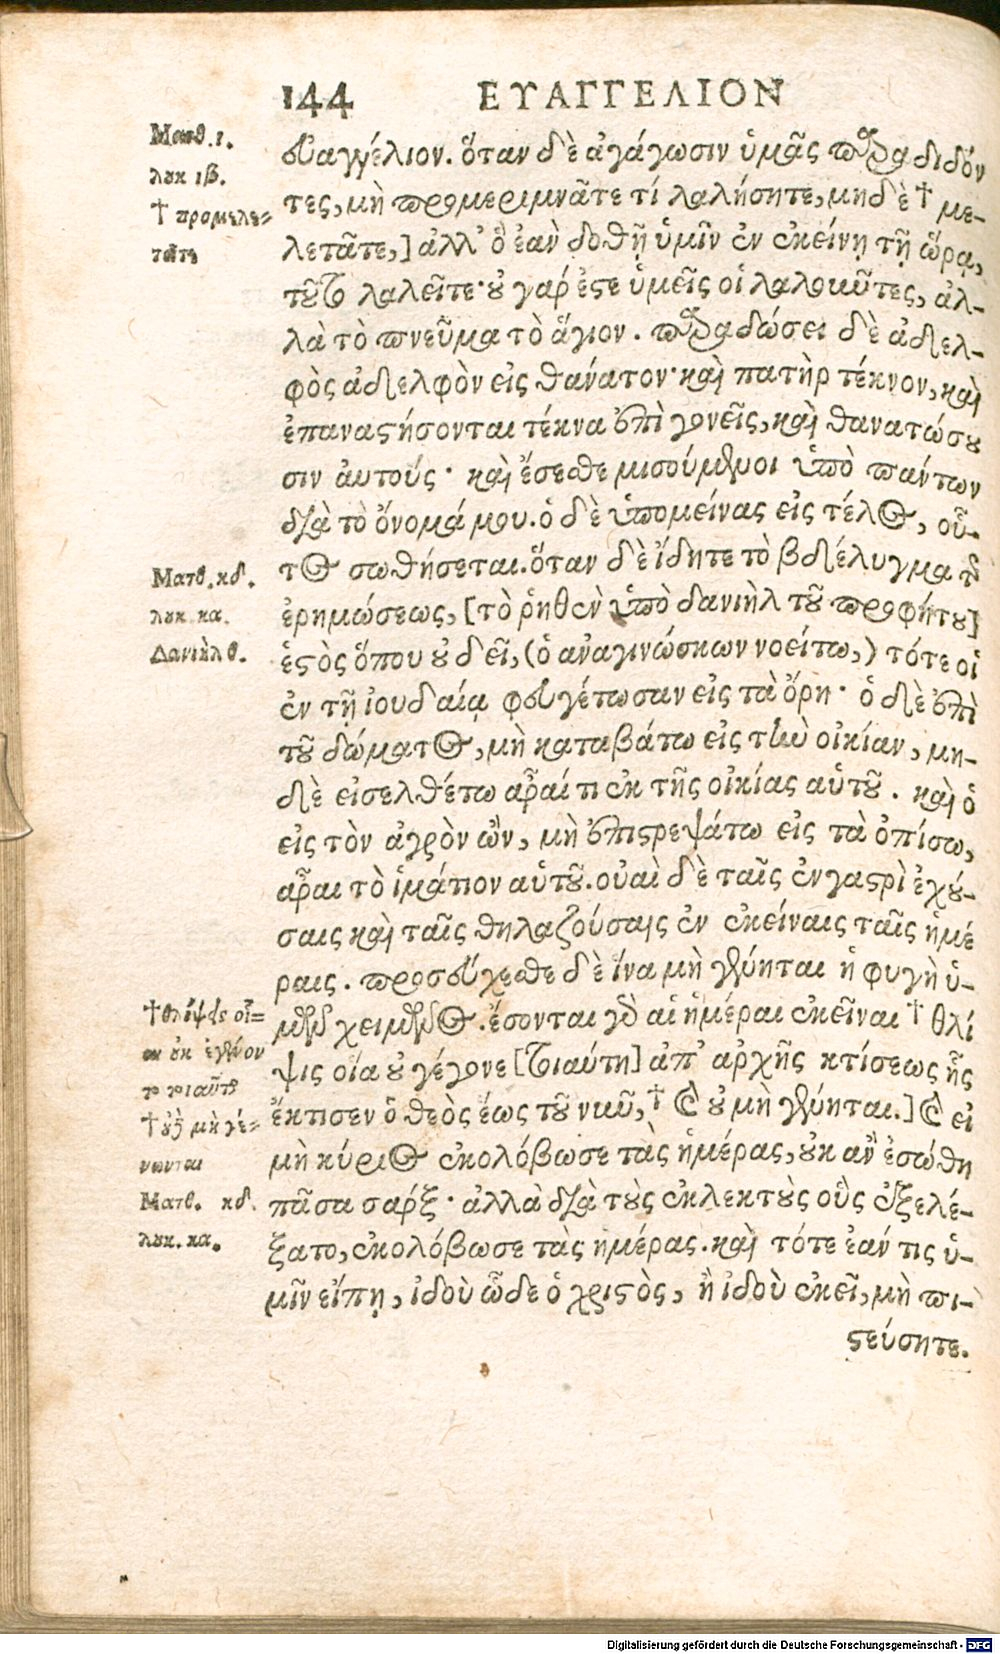 144 ΕΥΑΓΓΕΛΙΟΝ
Ματθ. ι.
λουκ ιβ.
† προμελε-
τᾶτε
ευαγγέλιον. ὅταν δὲ ἀγάγωσιν ὑμᾶς παραδιδόν
τες, μὴ προμεριμνᾶτε τί λαλήσητε, μηδὲ † με-
λετᾶτε,] ἀλλ' ὃ ἐὰν δοθῇ ὑμῖν ἐν ἐκείνῃ τῇ ὥρᾳ,
τοῦτο λαλεῖτε· οὐ γάρ ἐστε ὑμεῖς οἱ λαλοῦντες, ἀλ-
λὰ τὸ πνεῦμα τὸ ἅγιον. παραδώσει δὲ ἀδελ-
φὸς ἀδελφὸν εἰς θάνατον· καὶ πατὴρ τέκνον, καὶ
ἐπαναστήσονται τέκνα ἐπὶ γονεῖς, καὶ θανατώσου
σιν ἀυτούς· καὶ ἔσεσθε μισούμενοι ὑπὸ πάντων
διὰ τὸ ὄνομά μου. ὁ δὲ ὑπομείνας εἰς τέλος, οὗ-
τος σωθήσεται. ὅταν δὲ ἴδητε τὸ βδέλυγμα τῆς
Ματθ. κδ.
λουκ κα.
Δανιὴλ θ.
ἐρημώσεως, [τὸ ῥηθὲν ὑπὸ δανιὴλ τοῦ προφήτου]
ἑστὸς ὅπου οὐ δεῖ, (ὁ ἀναγινώσκων νοείτω,) τότε οἱ
ἐν τῇ ἰουδαίᾳ φευγέτωσαν εἰς τὰ ὄρη· ὁ δὲ ἐπὶ
τοῦ δώματος, μὴ καταβάτω εἰς τὴν οἰκίαν, μη-
δὲ εἰσελθέτω ἆραί τι ἐκ τῆς οἰκίας αὑτοῦ. καὶ ὁ
εἰς τὸν ἀγρὸν ὢν, μὴ ἐπιστρεψάτω εἰς τὰ ὀπίσω,
ἆραι τὸ ἱμάτιον αὑτοῦ. οὐαὶ δὲ ταῖς ἐν γαστρὶ ἐχού-
σαις καὶ ταῖς θηλαζούσαις ἐν ἐκείναις ταῖς ἡμέ
ραις. προσεύχεσθε δὲ ἵνα μὴ γένηται ἡ φυγὴ ὑ-
μῶν χειμῶνος. ἔσονται γὰρ αἱ ἡμέραι ἐκεῖναι † θλί
† θλίψεις οἷ-
αι οὐκ ἐγένον
το τοιαῦται
† οὐδὲ μὴ γέ-
νωνται
ψις οἵα οὐ γέγονε [τοιαύτη] ἀπ' ἀρχῆς κτίσεως ἧς
ἔκτισεν ὁ θεὸς ἕως τοῦ νῦν, † καὶ οὐ μὴ γένηται.] καὶ εἰ
μὴ κύριος ἐκολόβωσε τὰς ἡμέρας, οὐκ ἂν ἐσώθη
Ματθ. κδ.
λουκ. κα.
πᾶσα σαρξ· ἀλλὰ διὰ τοὺς ἐκλεκτοὺς οὓς ἐξελέ-
ξατο, ἐκολόβωσε τὰς ἡμέρας. καὶ τότε ἐάν τις ὑ-
μῖν εἴπῃ, ἰδοὺ ὧδε ὁ χριστὸς, ἢ ἰδοὺ ἐκεῖ, μὴ πι-
στεύσητε.
Digitalisierung gefördert durch die Deutsche Forschungsgemeinschaft - DFG